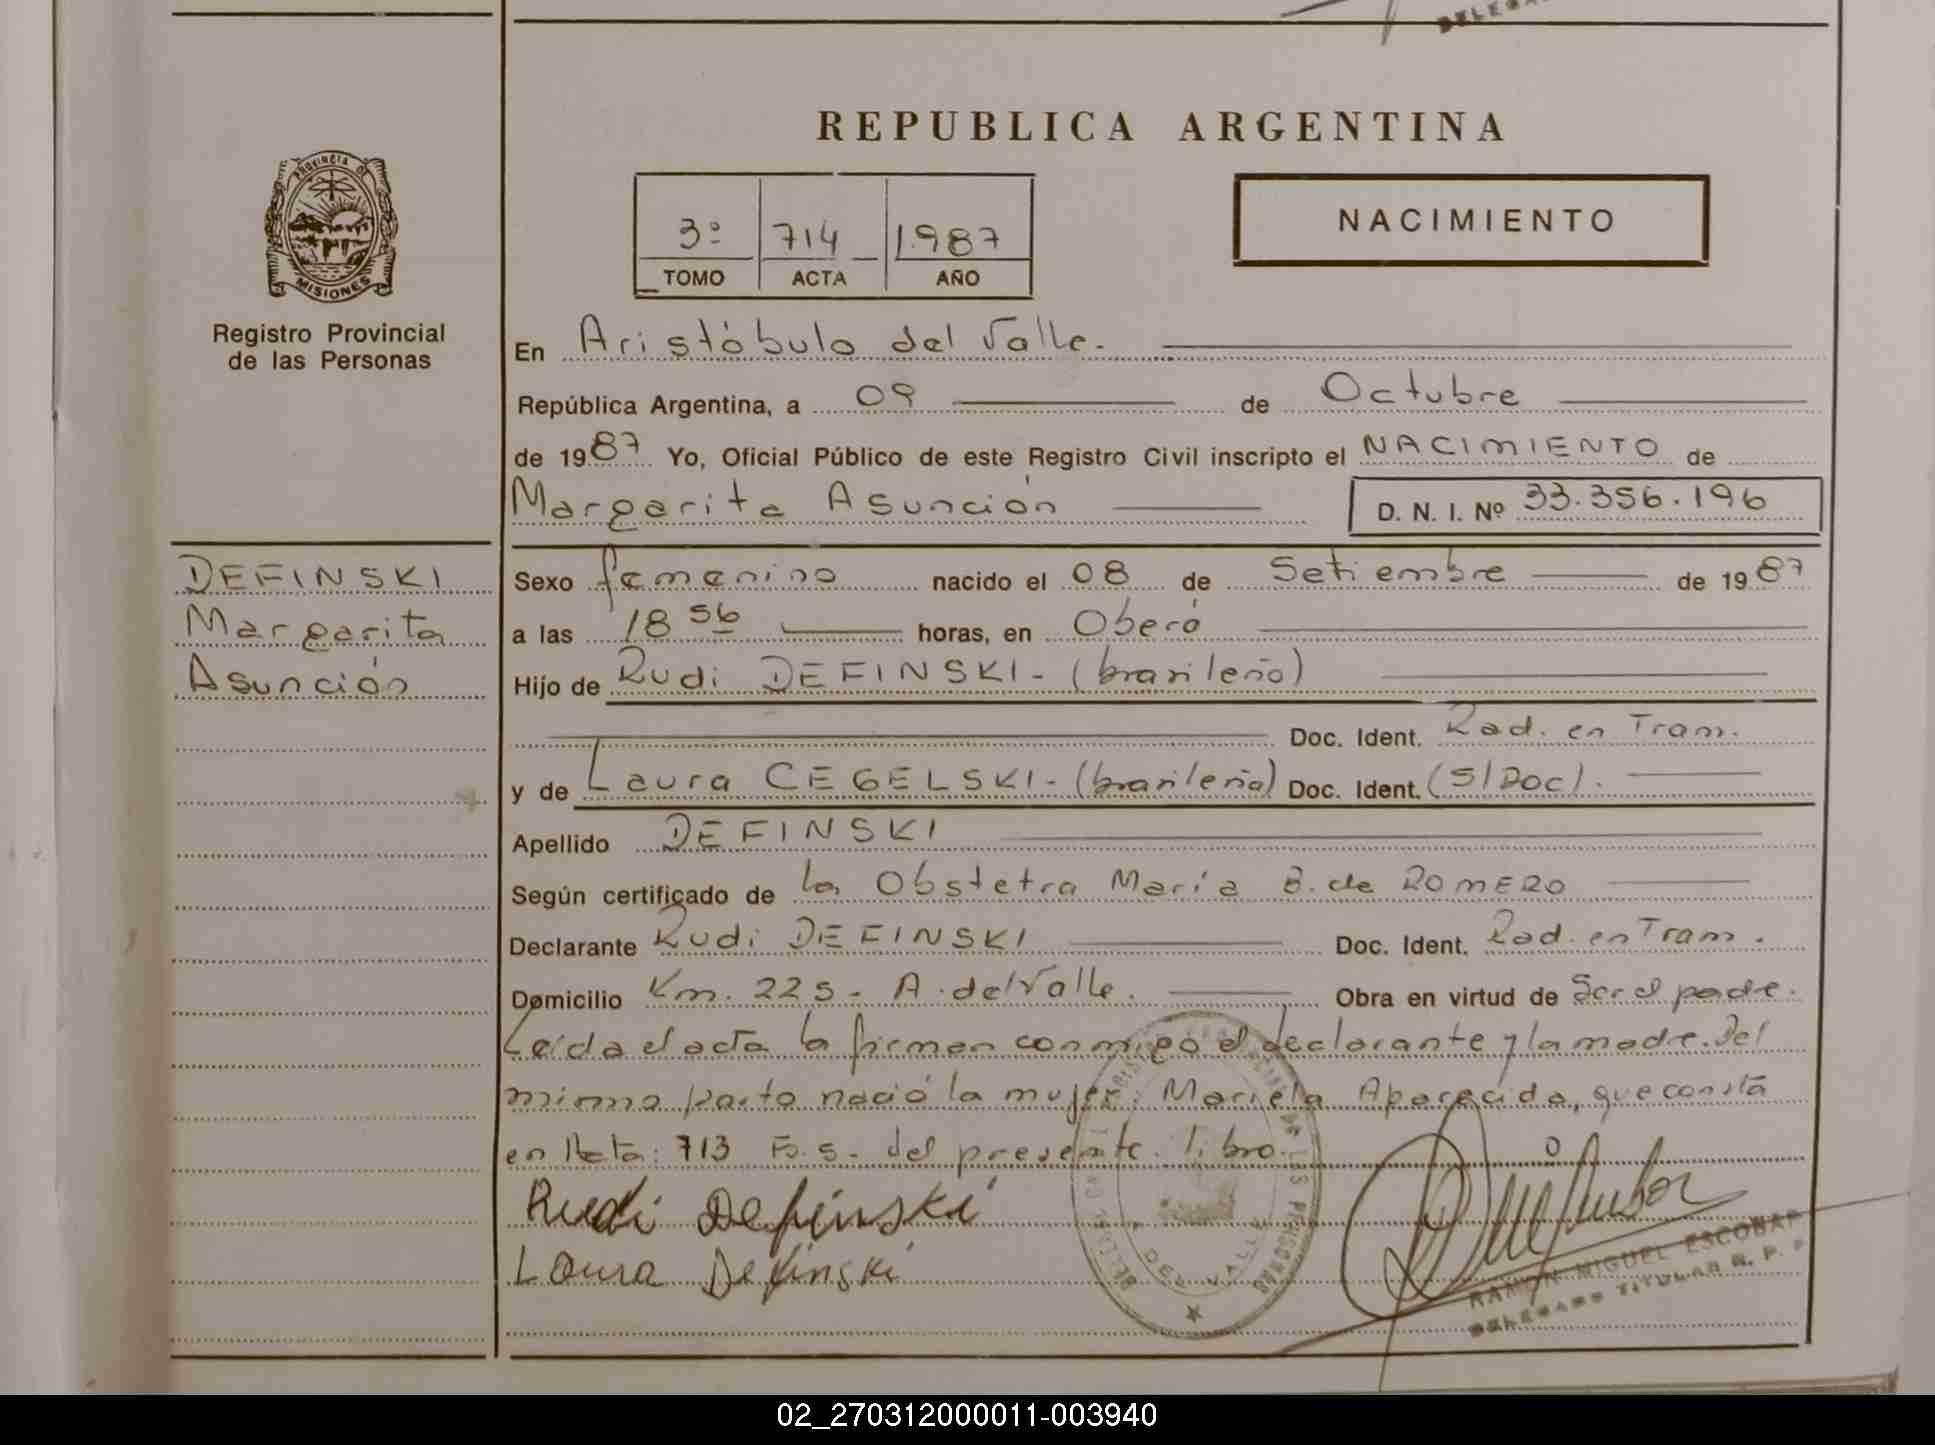 DELEGA
REPUBLICA ARGENTINA
PROVINCIA D
MISIONES
Registro Provincial
de las Personas
3º 714 1987
TOMO ACTA AÑO
NACIMIENTO
En Aristóbulo del Valle.
República Argentina, a 09 de Octubre
de 1987 Yo, Oficial Público de este Registro Civil inscripto el NACIMIENTO de
Margarita Asunción D. N. I. Nº 33.356.196
DEFINSKI
Margarita
Asunción
Sexo femenino nacido el 08 de Setiembre de 1987
a las 18 56 horas, en Oberá
Hijo de Rudi DEFINSKI - (brasileño)
Doc. Ident. Rad. en Tram.
y de Laura CEGELSKI - (brasileña) Doc. Ident. (S/DOC).
Apellido DEFINSKI
Según certificado de la Obstetra María B. de ROMERO
Declarante Rudi DEFINSKI Doc. Ident. Rad. en Tram.
Domicilio Km. 225 - A. del Valle. Obra en virtud de Ser el padre.
Leída el acta la firman conmigo el declarante y la madre. Del
mismo parto nació la mujer: Mariela Aparecida, que consta
en Acta: 713 Fs. 5 - del presente libro.
Rudi Definski
Laura Definski
DEL VALLE
RAMON MIGUEL ESCOBAR
DELEGADO TITULAR R. P. P.
02_270312000011-003940